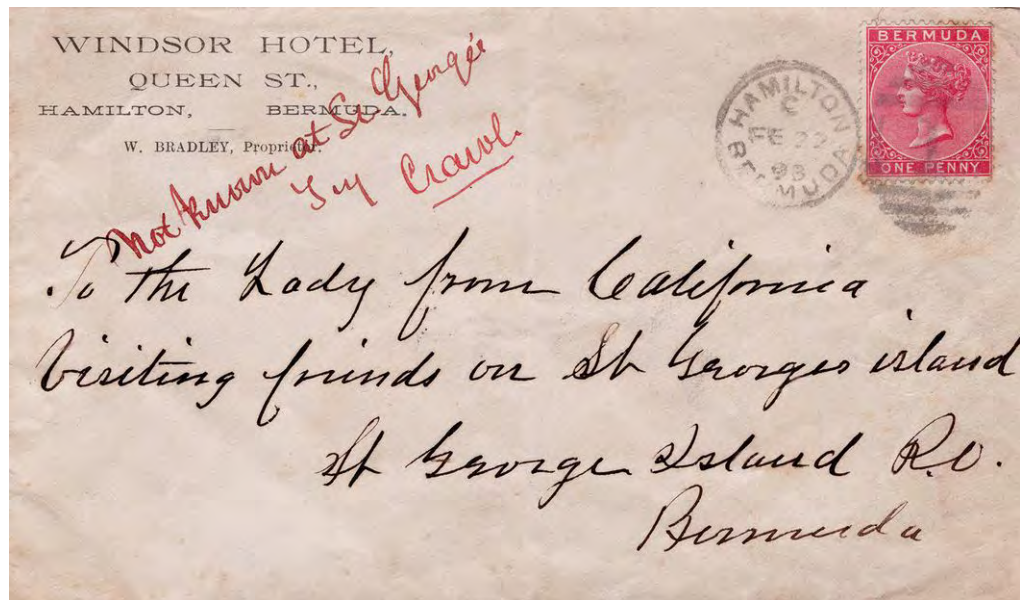 WINDSOR HOTEL,
QUEEN ST.,
HAMILTON, BERMUDA.
W. BRADLEY, Proprietor.
Not known at St Georges
Try Crawl.
HAMILTON
C
FE 22
93
BERMUDA
BERMUDA
ONE PENNY
To the Lady from California
Visiting friends on St Georges island
St George Island P.O.
Bermuda